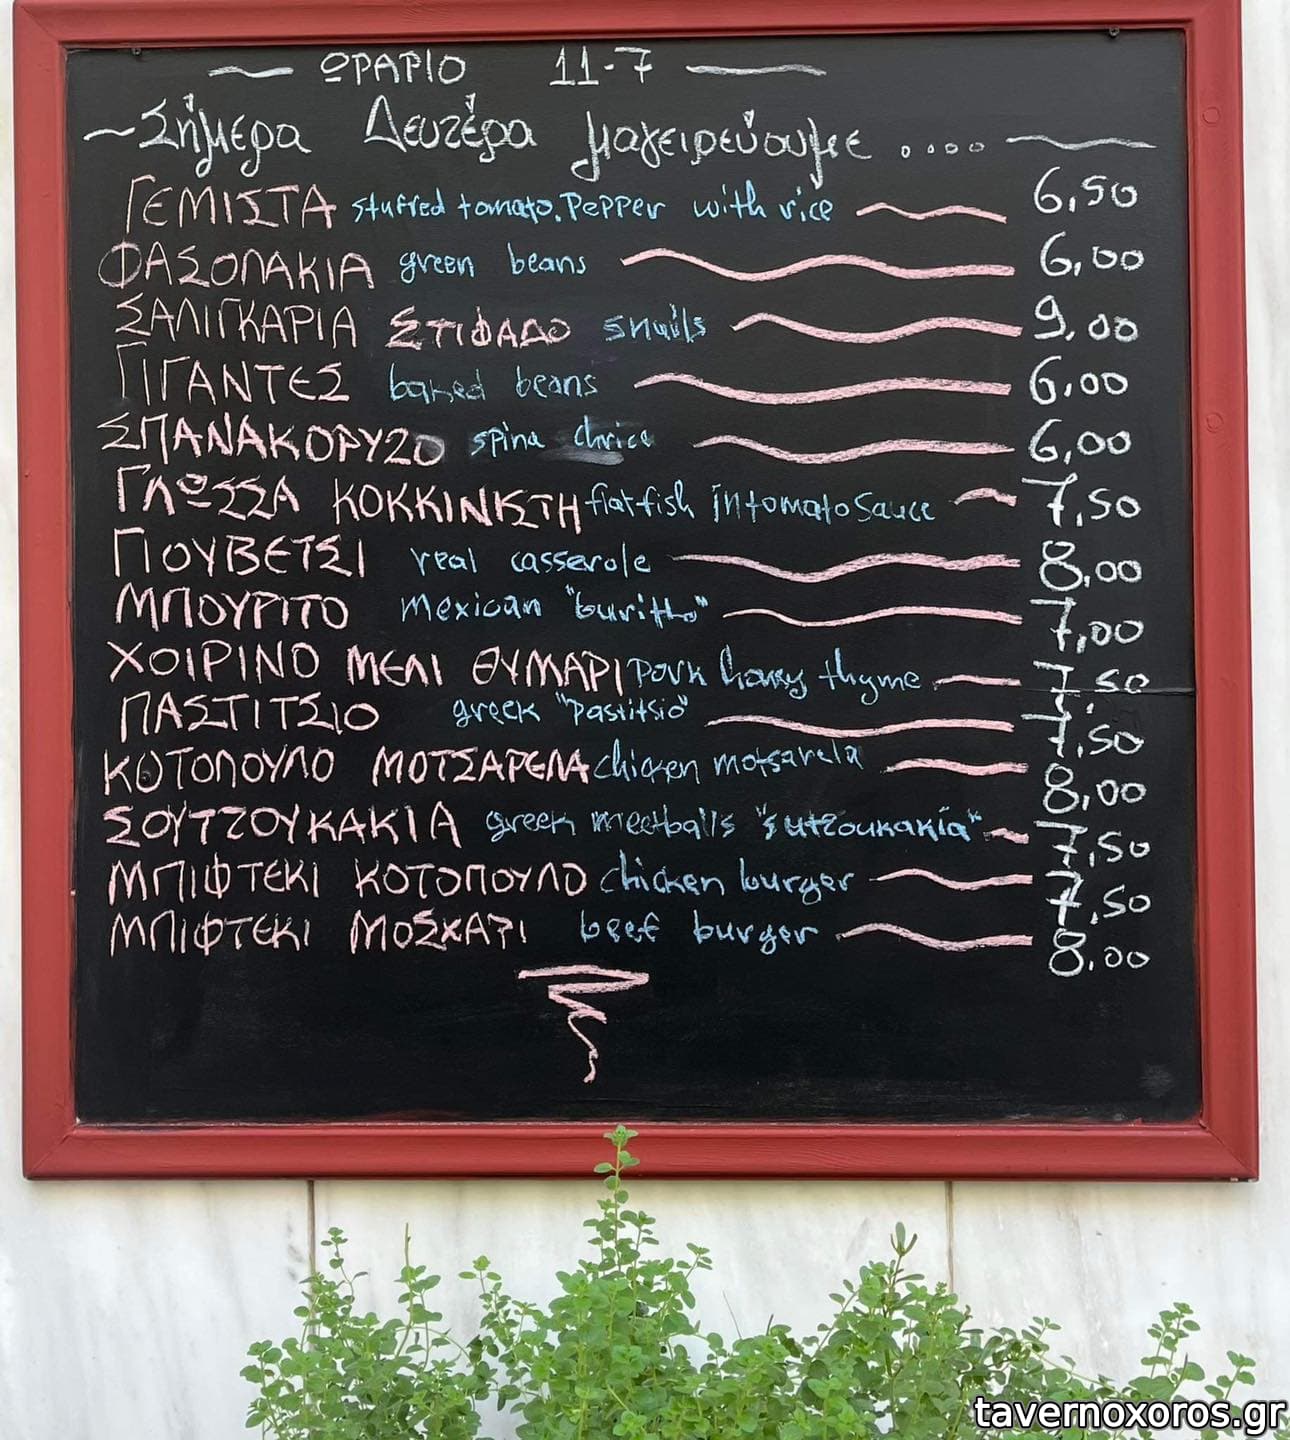 ΩΡΑΡΙΟ 11-7
Σήμερα Δευτέρα μαγειρεύουμε ....
ΓΕΜΙΣΤΑ stuffed tomato.Pepper with rice 6,50
ΦΑΣΟΛΑΚΙΑ green beans 6,00
ΣΑΛΙΓΚΑΡΙΑ ΣΤΙΦΑΔΟ snails 9,00
ΓΙΓΑΝΤΕΣ baked beans 6,00
ΣΠΑΝΑΚΟΡΥΖΟ spina 6,00
ΓΛΩΣΣΑ ΚΟΚΚΙΝΙΣΤΗ flatfish in tomato sauce 7,50
ΓΙΟΥΒΕΤΣΙ veal casserole 8,00
ΜΠΟΥΡΙΤΟ Mexican "buritto" 7,00
ΧΟΙΡΙΝΟ ΜΕΛΙ ΘΥΜΑΡΙ pork honey thyme 7,50
ΠΑΣΤΙΤΣΙΟ greek "Pastitsio" 7,50
ΚΟΤΟΠΟΥΛΟ ΜΟΤΣΑΡΕΛΑ chicken motsarela 8,00
ΣΟΥΤΖΟΥΚΑΚΙΑ greek meetballs "sutzoukakia" 7,50
ΜΠΙΦΤΕΚΙ ΚΟΤΟΠΟΥΛΟ chicken burger 7,50
ΜΠΙΦΤΕΚΙ ΜΟΣΧΑΡΙ beef burger 8,00
tavernoxoros.gr